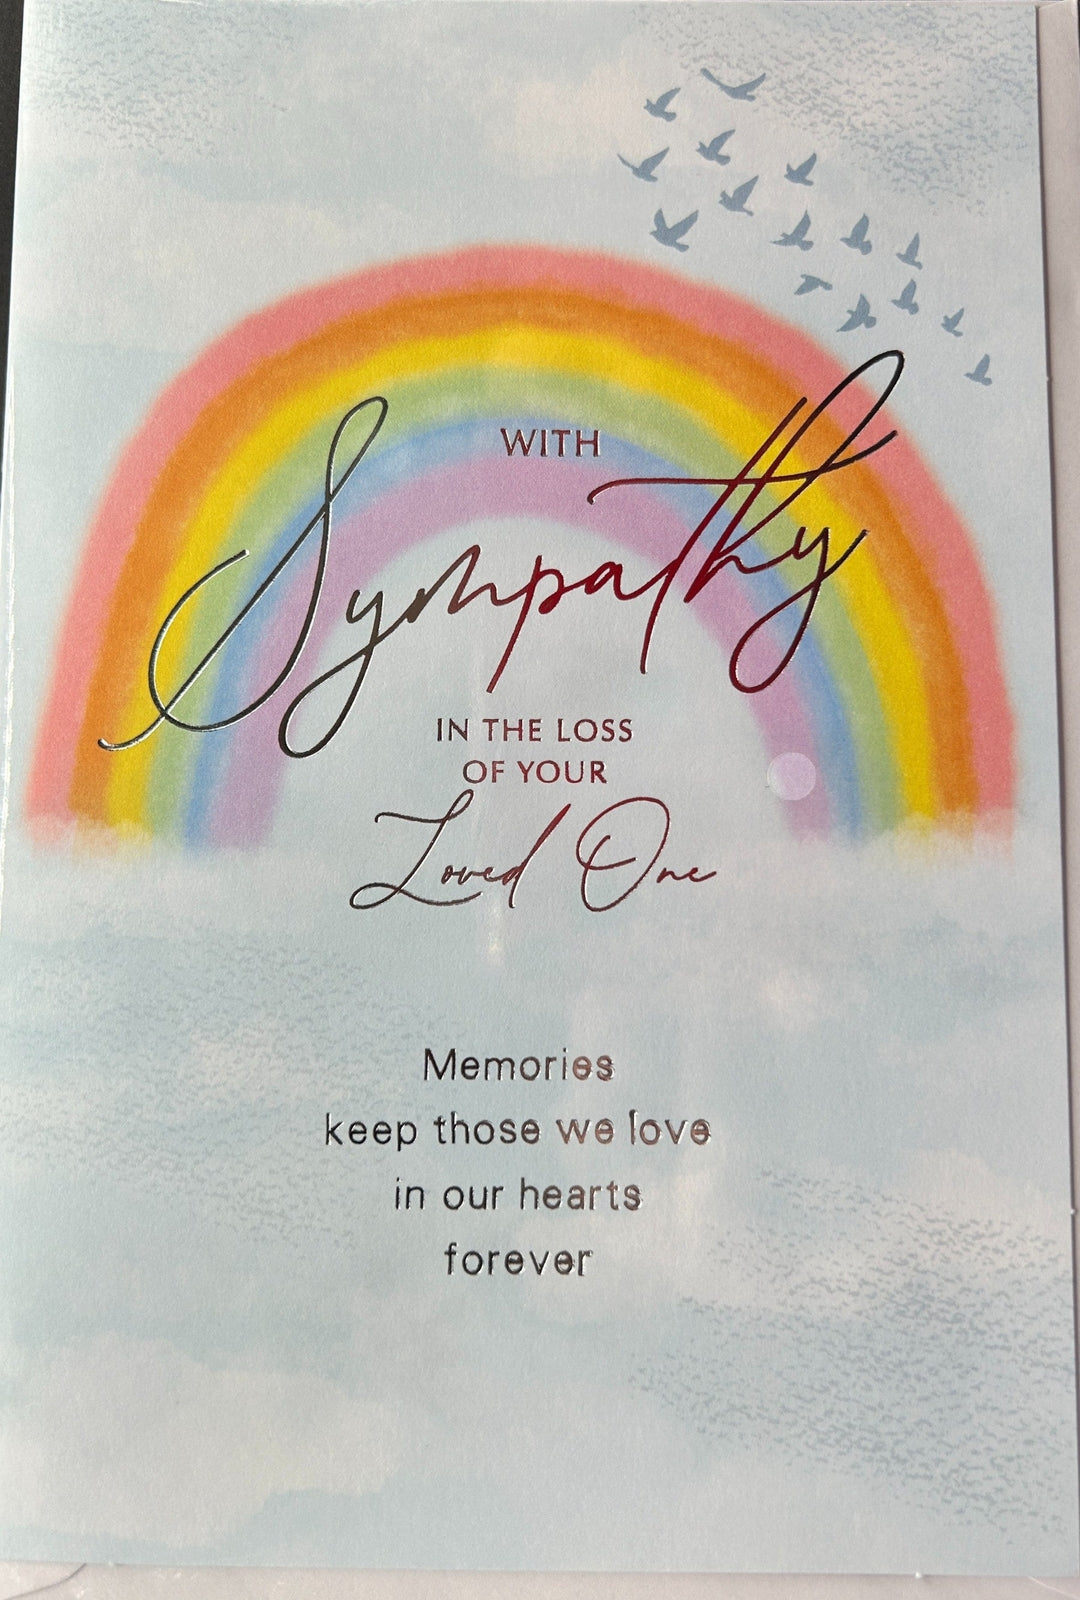 WITH
Sympathy
IN THE LOSS
OF YOUR
Loved One
Memories
keep those we love
in our hearts
forever